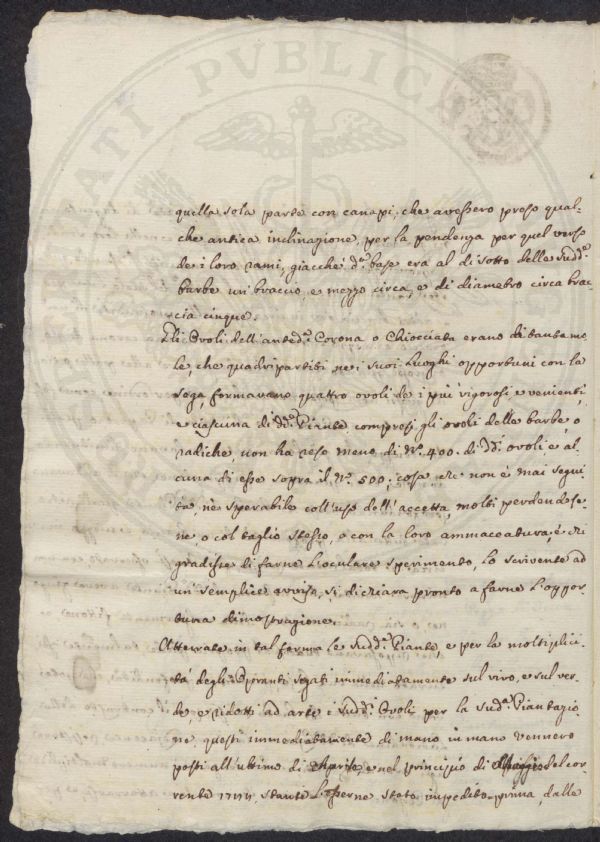 PVBLICA
quella sola parte con canapi, che avessero preso qual-
che antica inclinazione, per la pendenza per quel verso
de i loro rami, giacché d.ᵃ base era al di sotto delle sudd.ᵉ
barbe un braccio, e mezzo circa, e di diametro circa brac-
cia cinque.
Gli Ovoli dell'anted.ᵃ Corona o Chiocciata erano di tanta mo
le, che quadripartiti nei suoi luoghi opportuni con la
sega, formavano quattro ovoli de i più vigorosi, e venienti,
e ciascuna di dd.ᵉ Piante compresi gli ovoli delle barbe, o
radiche, non ha reso meno di N.º 400. di dd.ⁱ ovoli e al-
cuna di esse sopra il N.º 500; cosa che non è mai segui
ta, né sperabile coll'uso dell'accetta, molti perdendose-
ne o col taglio stesso, o con la loro ammaccatura, e chi
gradisse di farne l'oculare sperimento, lo scrivente ad
un semplice avviso, si dichiara pronto a farne l'oppor-
tuna dimostrazione.
Atterrate in tal forma le sudd.ᵉ Piante, e per la moltiplici-
tà degli Opranti segati immediatamente sul vivo, e sul ver-
de, e ridotti ad arte i sudd.ⁱ Ovoli per la sud.ᵃ Piantazio
ne questi immediatamente di mano in mano vennero
posti all'ultimo di Aprile, e nel principio di Maggio del cor-
rente stante l'esserne stato impedito prima, dalle